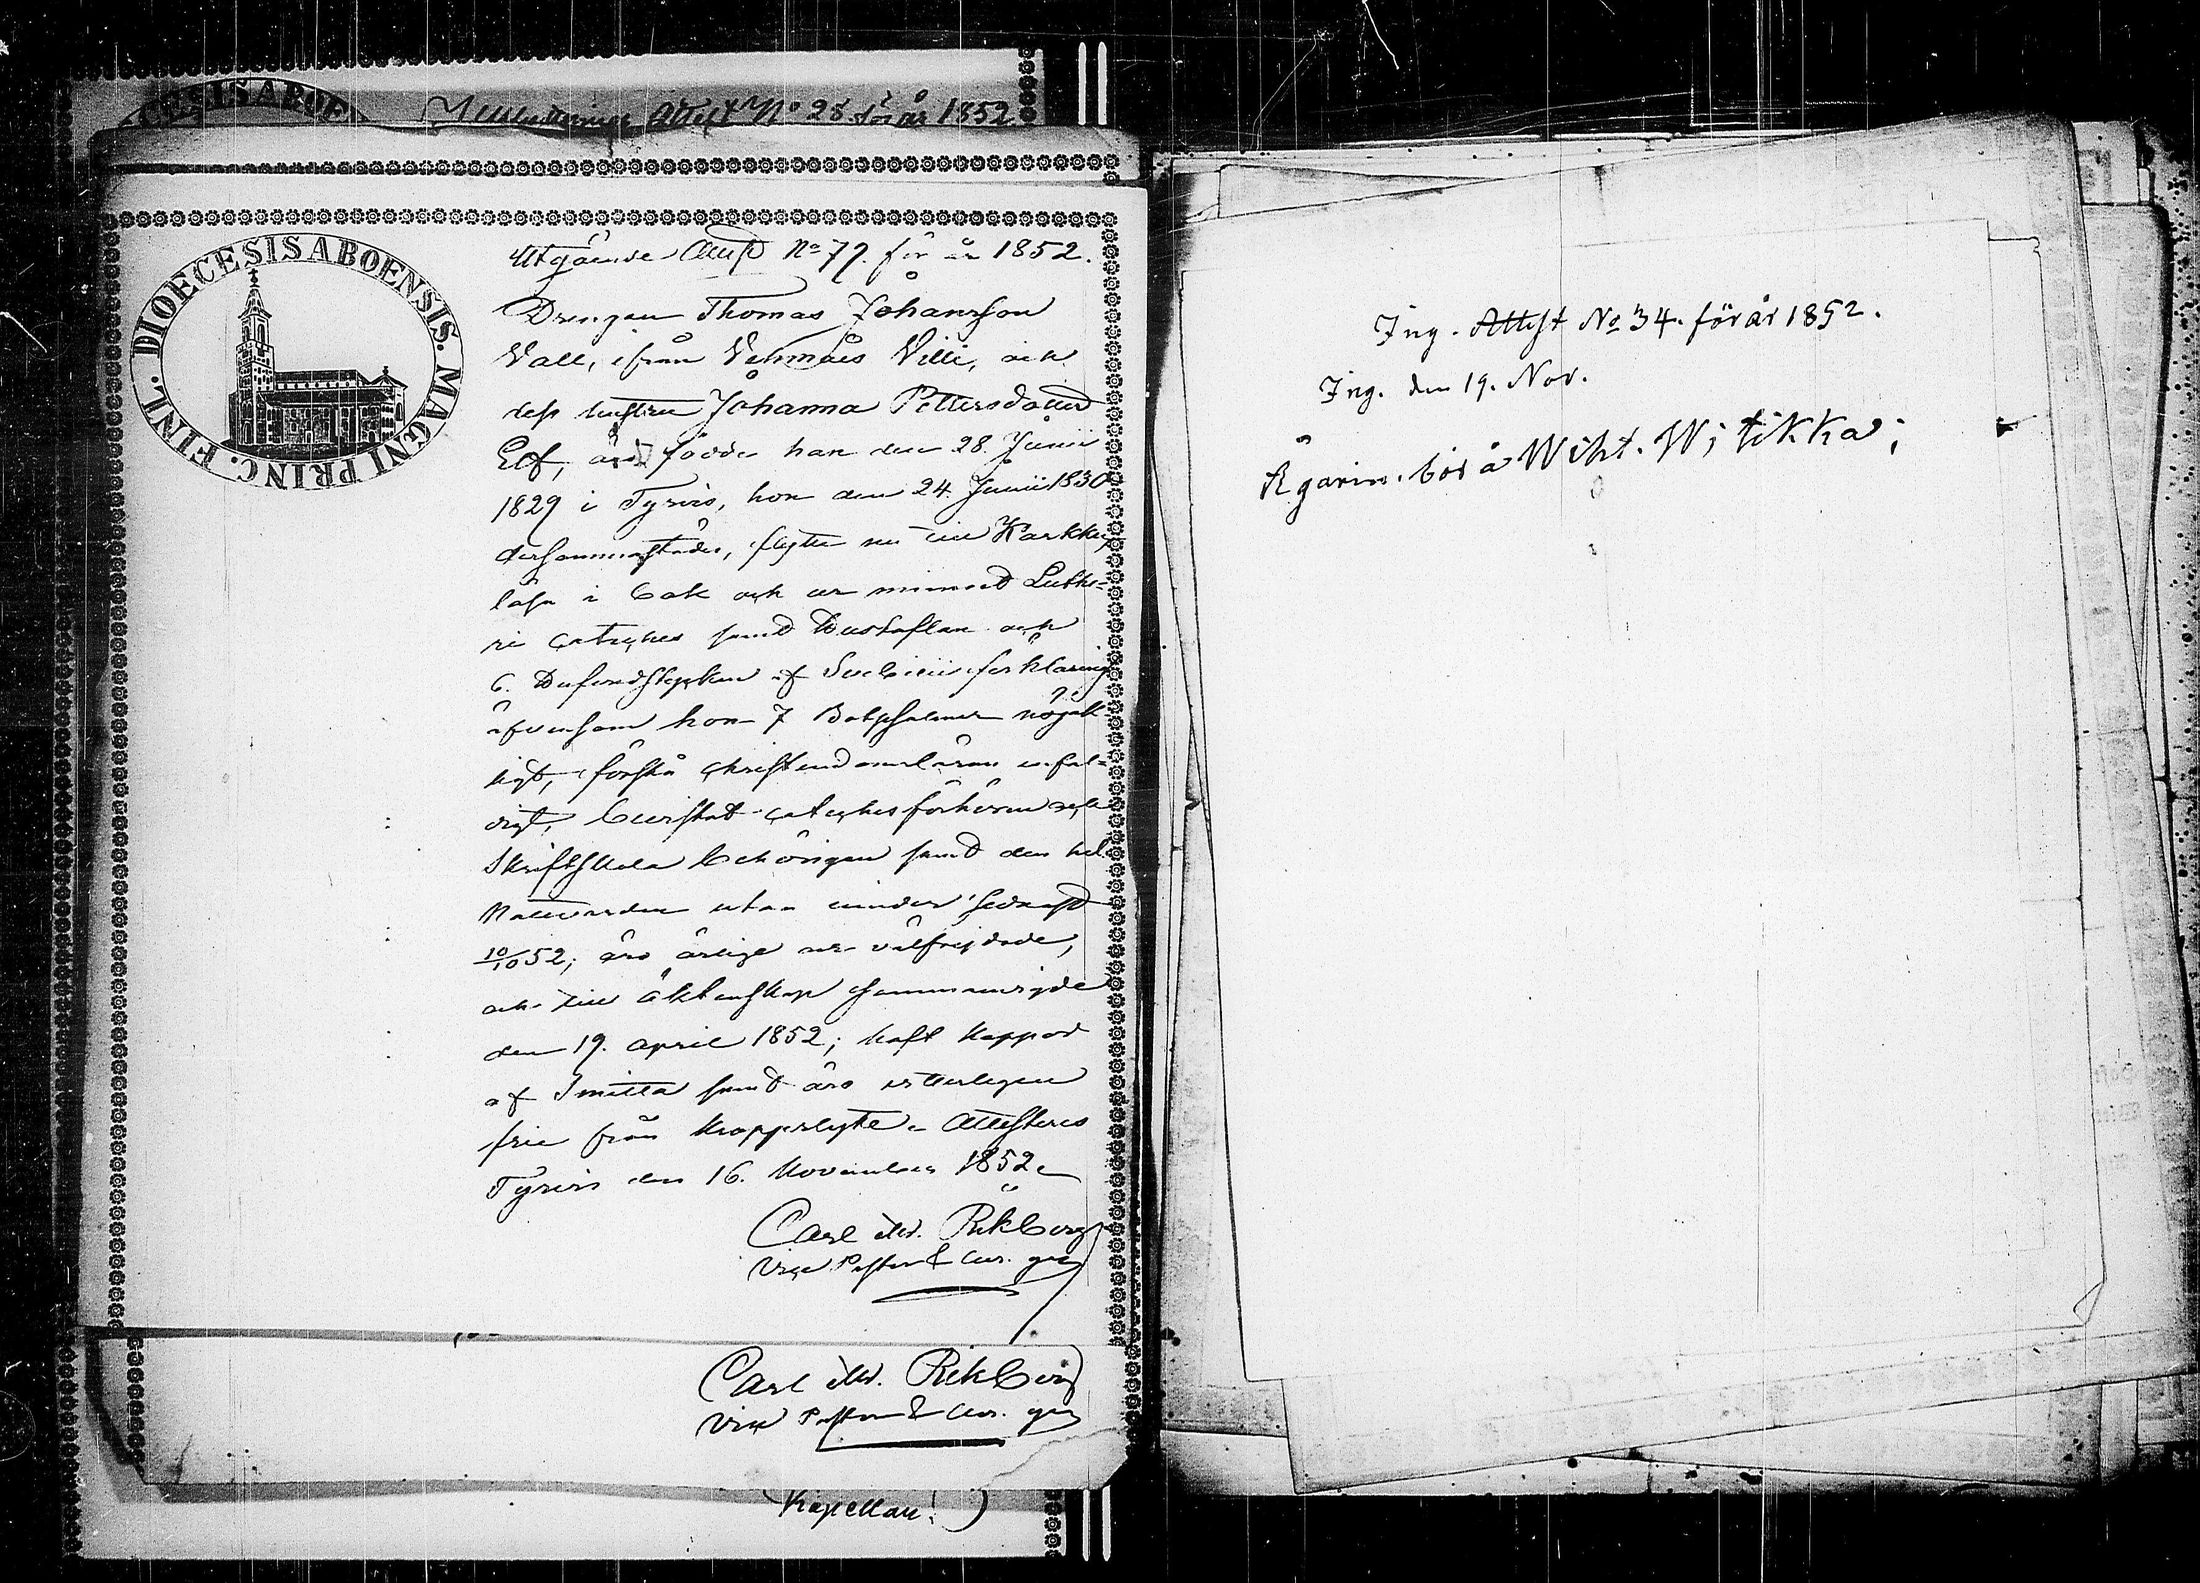 CESIS ABOE
Attest No 28 för år 1852
DIOECESIS ABOENSIS. MAGNI PRINC. FINL.
Utgående Attest No 79. för år 1852.
Drengen Thomas Johansson
Wall, ifrån Vehmais Villi, och
dess hustru Johanna Pettersdotter
Elf, äro födde han den 28. Junii
1829 i Tyrvis, hon den 24. Junii 1830
dersammastädes, flytta nu till Karkku,
läsa i bok och ur minnet Luthe-
ri cateches samt Hustaflan och
6. Hufvudstycken af Svebilii förklaring
äfvensom hon 7 Botpsalmer nöjak-
tigt, förstå christendomsläran enfal-
digt, bevistat catechesförhören och
Skriftskola behörigen samt den hel.
Nattvarden utan hinder sednast
10/10 52; äro ärlige och välfrejdade,
och till äktenskap sammanvigde
den 19. April 1852; haft koppor
af Smitta samt äro ytterligen
frie från kroppslyte. Attesteras
Tyrvis den 16. November 1852.
Carl Rikberg
Vice Pastor & Cur. ger
Carl Rikberg
Vice Pastor & Cur. ger
Kapellan!
Ing. Attest No 34. för år 1852.
Ing. den 19. Nov.
Ägarin. bör å Wiht. Witikka;